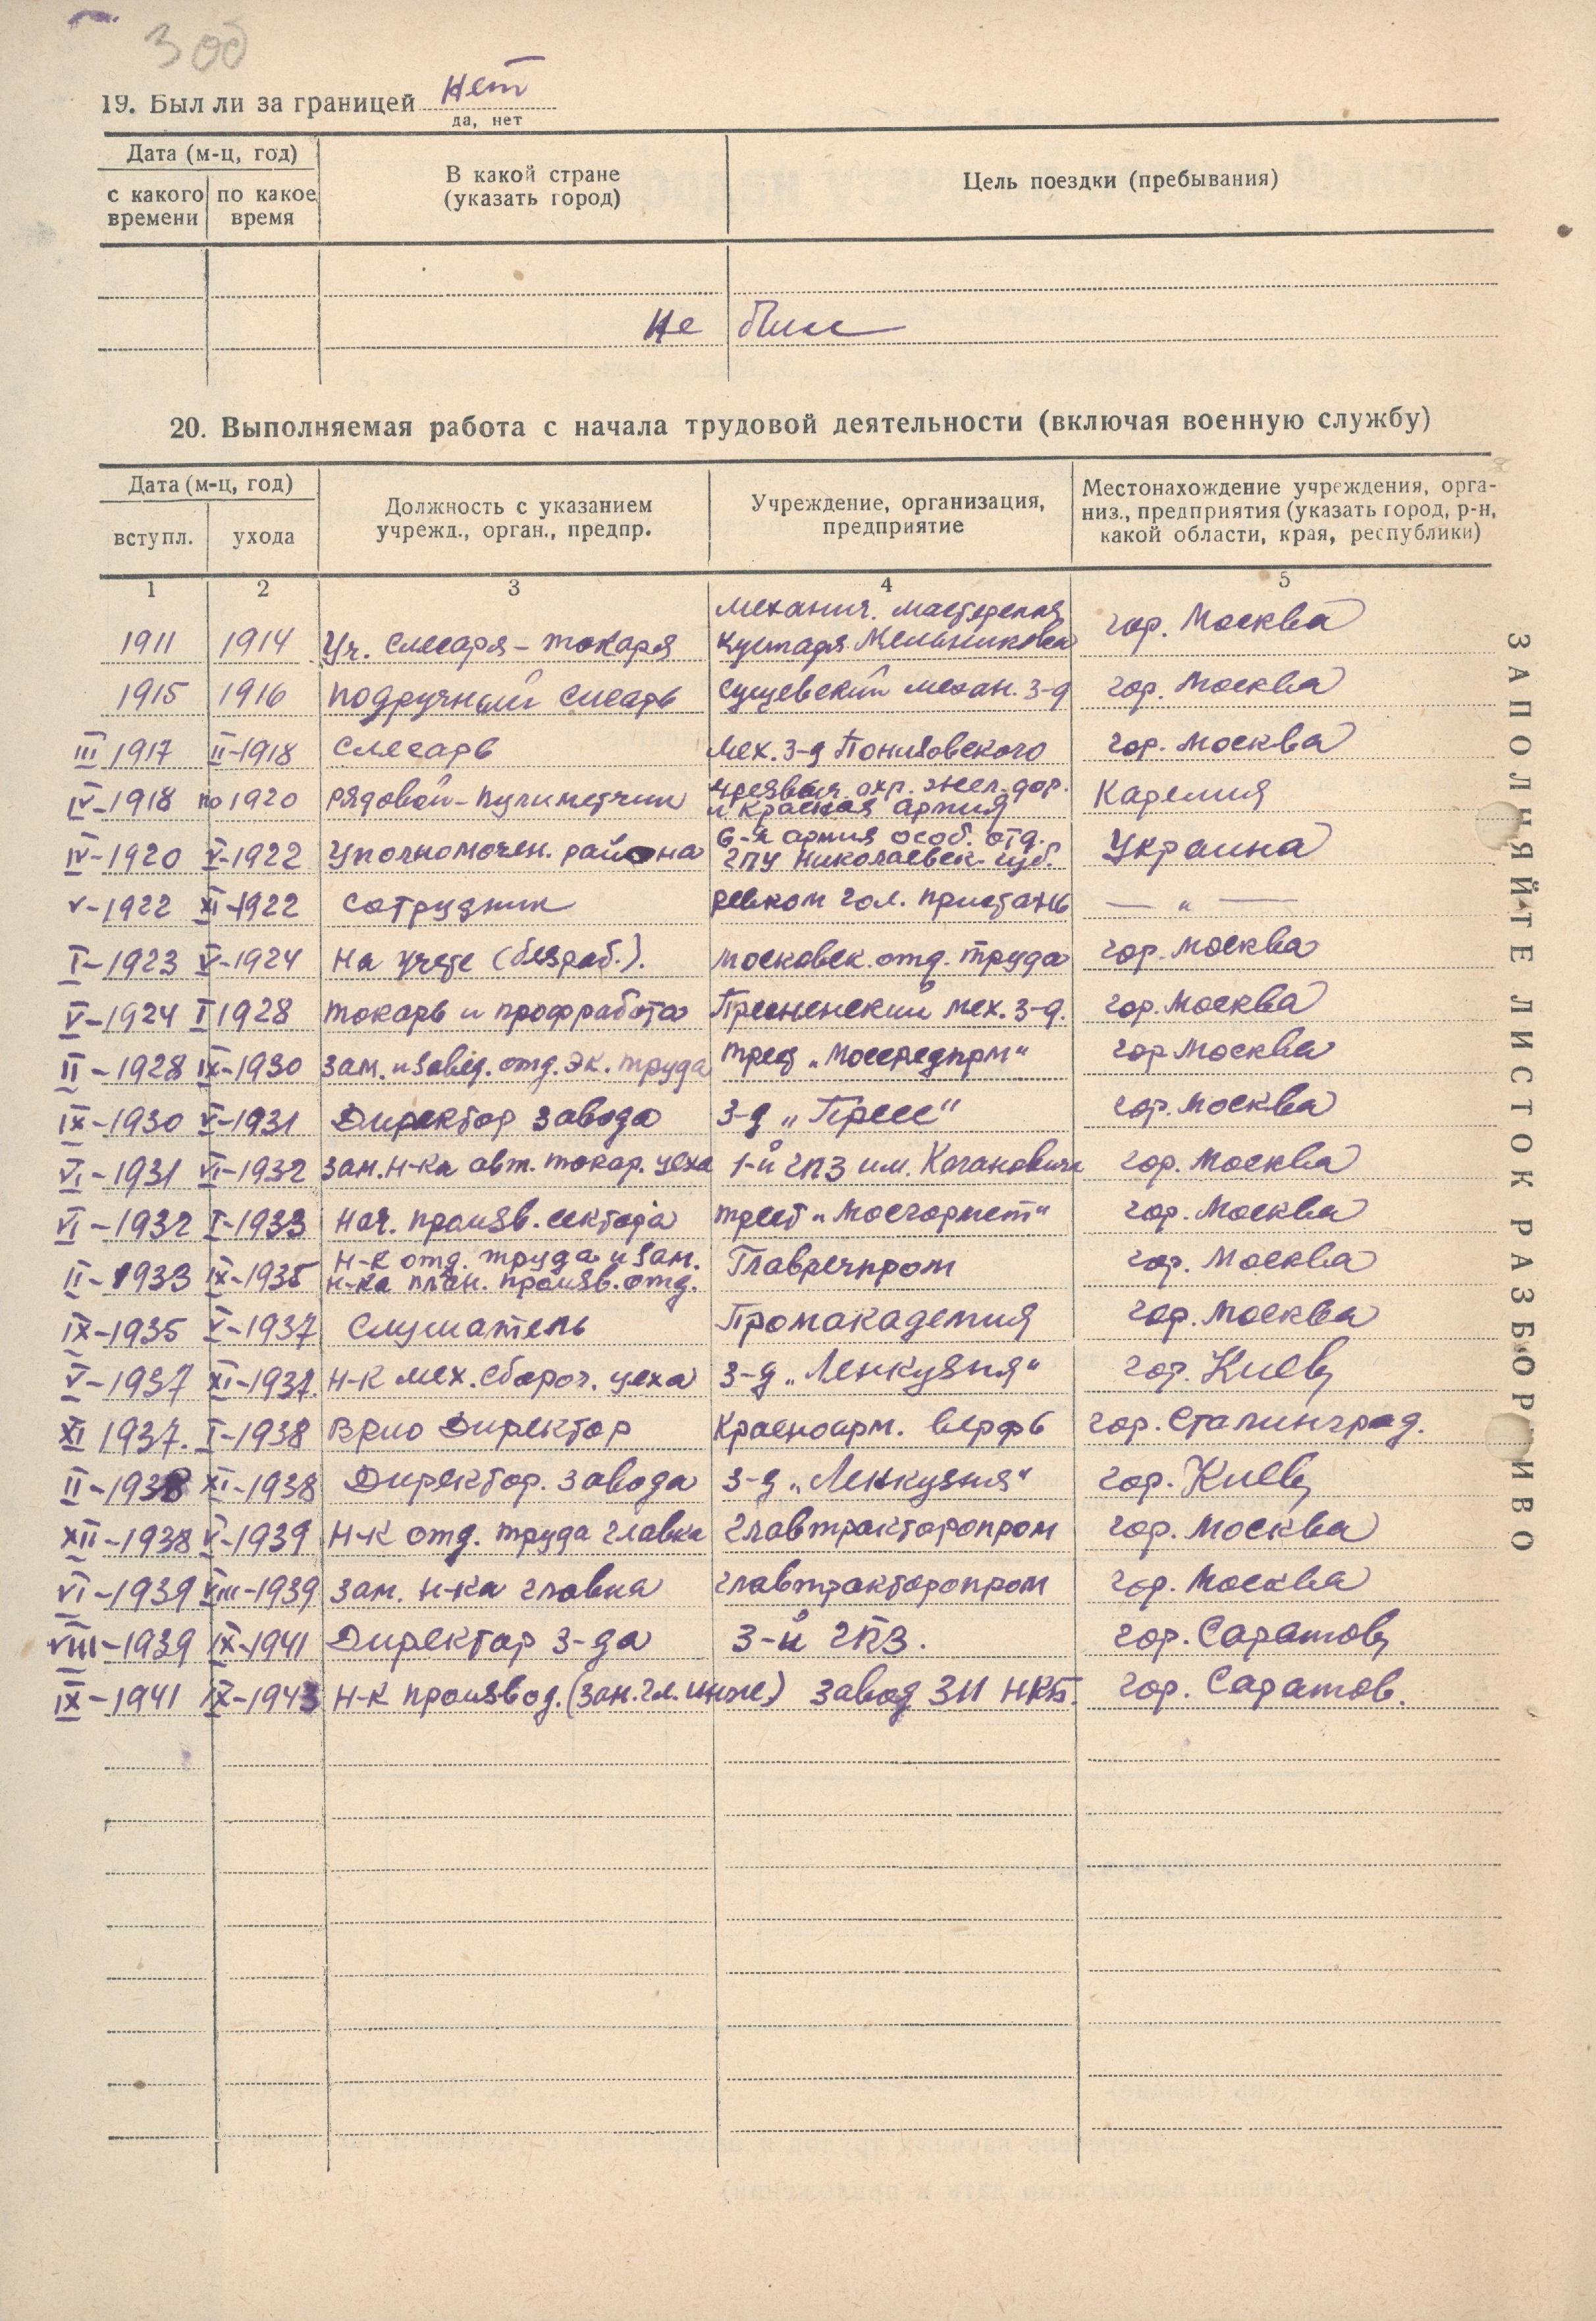 3 об
19. Был ли за границей нет
да, нет
Дата (м-ц, год)
с какого времени
по какое время
В какой стране
(указать город)
Цель поездки (пребывания)
Не был
20. Выполняемая работа с начала трудовой деятельности (включая военную службу)
Дата (м-ц, год)
вступл.
ухода
Должность с указанием
учрежд., орган., предпр.
Учреждение, организация,
предприятие
Местонахождение учреждения, орга-
низ., предприятия (указать город, р-н,
какой области, края, республики)
1 2 3 4 5
механич. мастерская
1911 1914 Уч. слесаря-токаря кустаря Мельникова гор. Москва
1915 1916 подручный слесарь Сущевский механ. з-д гор. Москва
III 1917 II-1918 слесарь Мех. з-д гор. Москва
охр. жел. дор.
IV-1918 по 1920 рядовой-пулиметчик и Красная армия Карелия
6-я армия особ. отд.
IV-1920 V-1922 Уполномочен. района ГПУ Николаевск. губ. Украина
V-1922 XI-1922 сотрудник ревком гол. пристань — „ —
I-1923 V-1924 На учете (безраб.). московск. отд. труда гор. Москва
V-1924 I 1928 токарь и профработа Пресненский мех. з-д. гор. Москва
II-1928 IX-1930 зам. и завед. отд. эк. труда трест „Мосередпром“ гор Москва
IX-1930 V-1931 Директор завода з-д „Пресс“ гор. Москва
VI-1931 VI-1932 зам. н-ка авт. токар. цеха 1-й ГПЗ им. Кагановича гор. Москва
VI-1932 I-1933 нач. произв. сектора трест „Мосгормет“ гор. Москва
Н-к отд. труда и зам.
II-1933 IX-1935 н-ка план. произв. отд. Главречпром гор. Москва
IX-1935 V-1937 Слушатель Промакадемия гор. Москва
V-1937 XI-1937. Н-к мех. сбороч. цеха з-д „Ленкузня“ гор. Киев
XI 1937. I-1938 Врио Директор Красноарм. верфь гор. Сталинград.
II-1938 XI-1938 Директор. завода з-д „Ленкузня“ гор. Киев
XII-1938 V-1939 Н-к отд. труда главка Главтракторопром гор. Москва
VI-1939 VIII-1939 зам. н-ка главка главтракторопром гор. Москва
VIII-1939 IX-1941 Директор з-да 3-й ГПЗ. гор. Саратов
IX-1941 IX-1943 Н-к производ. (зам. гл. инж) завод ЗИ НКБ. гор. Саратов.
ЗАПОЛНЯЙТЕ ЛИСТОК РАЗБОРЧИВО